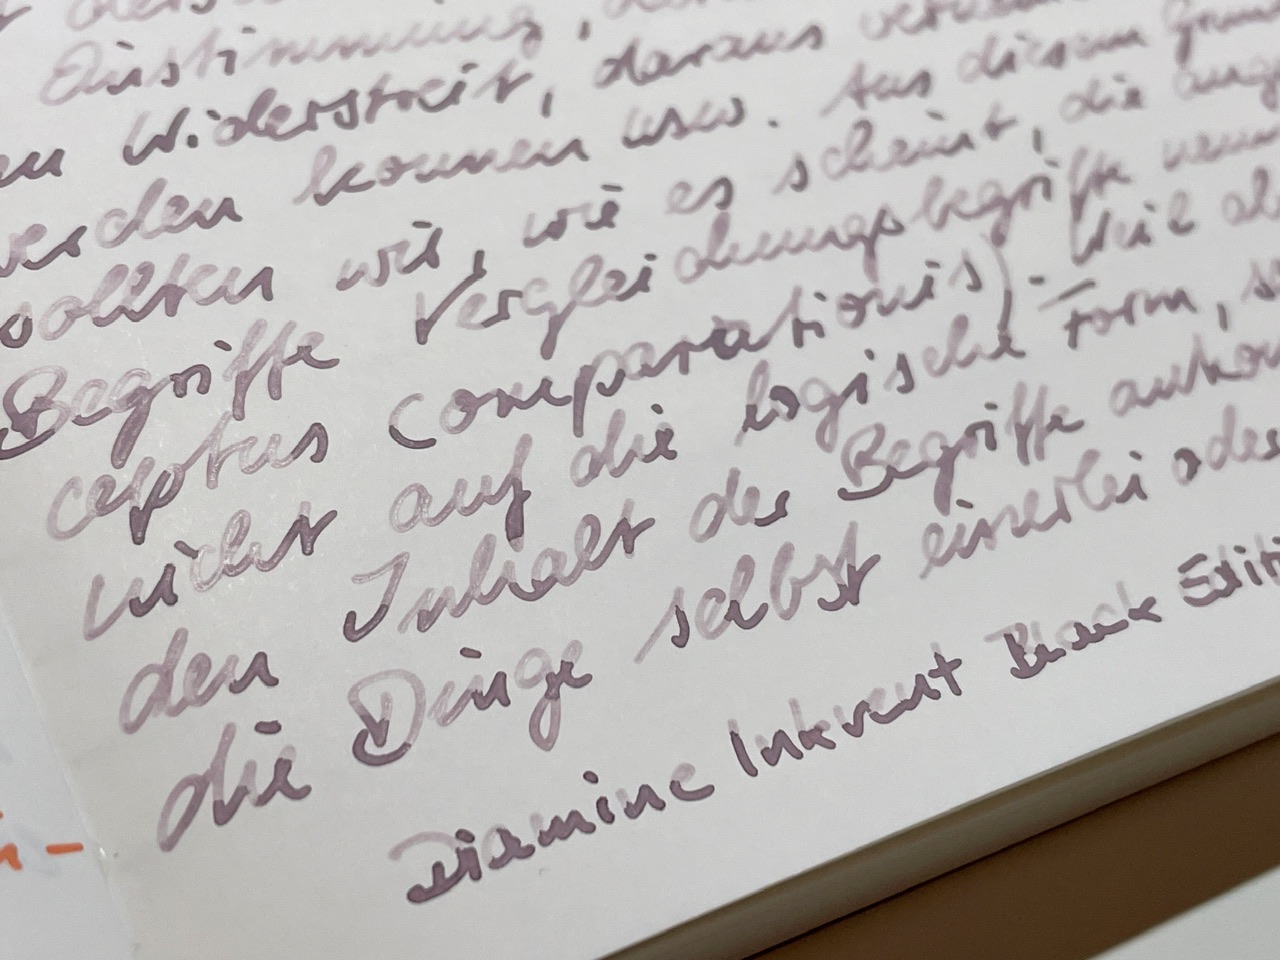 Einstimmung,
Widerstreit, daraus
werden können usw. Aus diesem
sollten wir, wie es scheint, die
Begriffe Vergleichungsbegriffe
ceptus comparationis). Weil
nicht auf die logische Form,
den Inhalt der Begriffe
die Dinge selbst einerlei oder
Diamine Inkvent Black